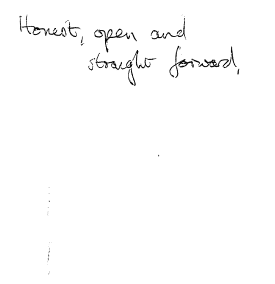 Honest, open and
straight forward,